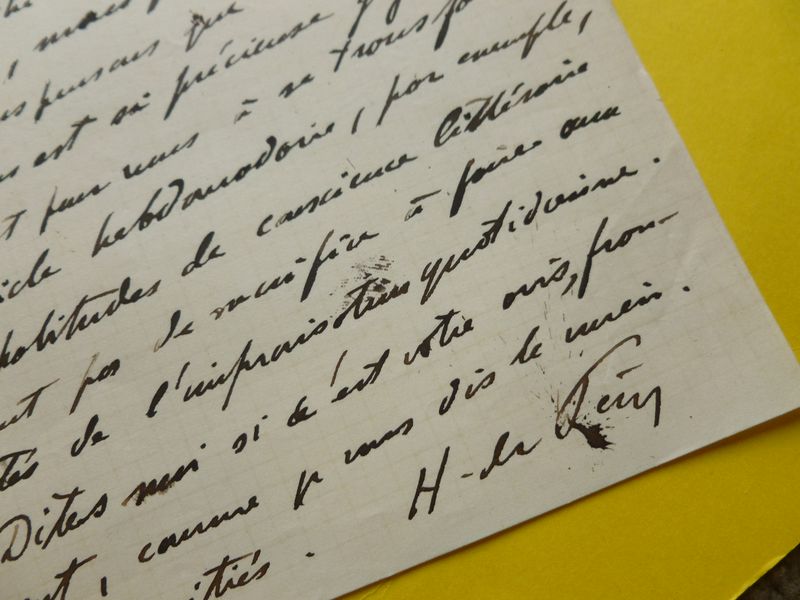 , mais
pensons que
est si précieuse
pour vous à se transfo
hebdomadaire, par exemple,
habitudes de conscience littéraire
pas de sacrifice à faire aux
tés de l'improvisation quotidienne.
Dites moi si c'est votre avis, fran-
, comme je vous dis le mien.
itiés.
H. de Pène